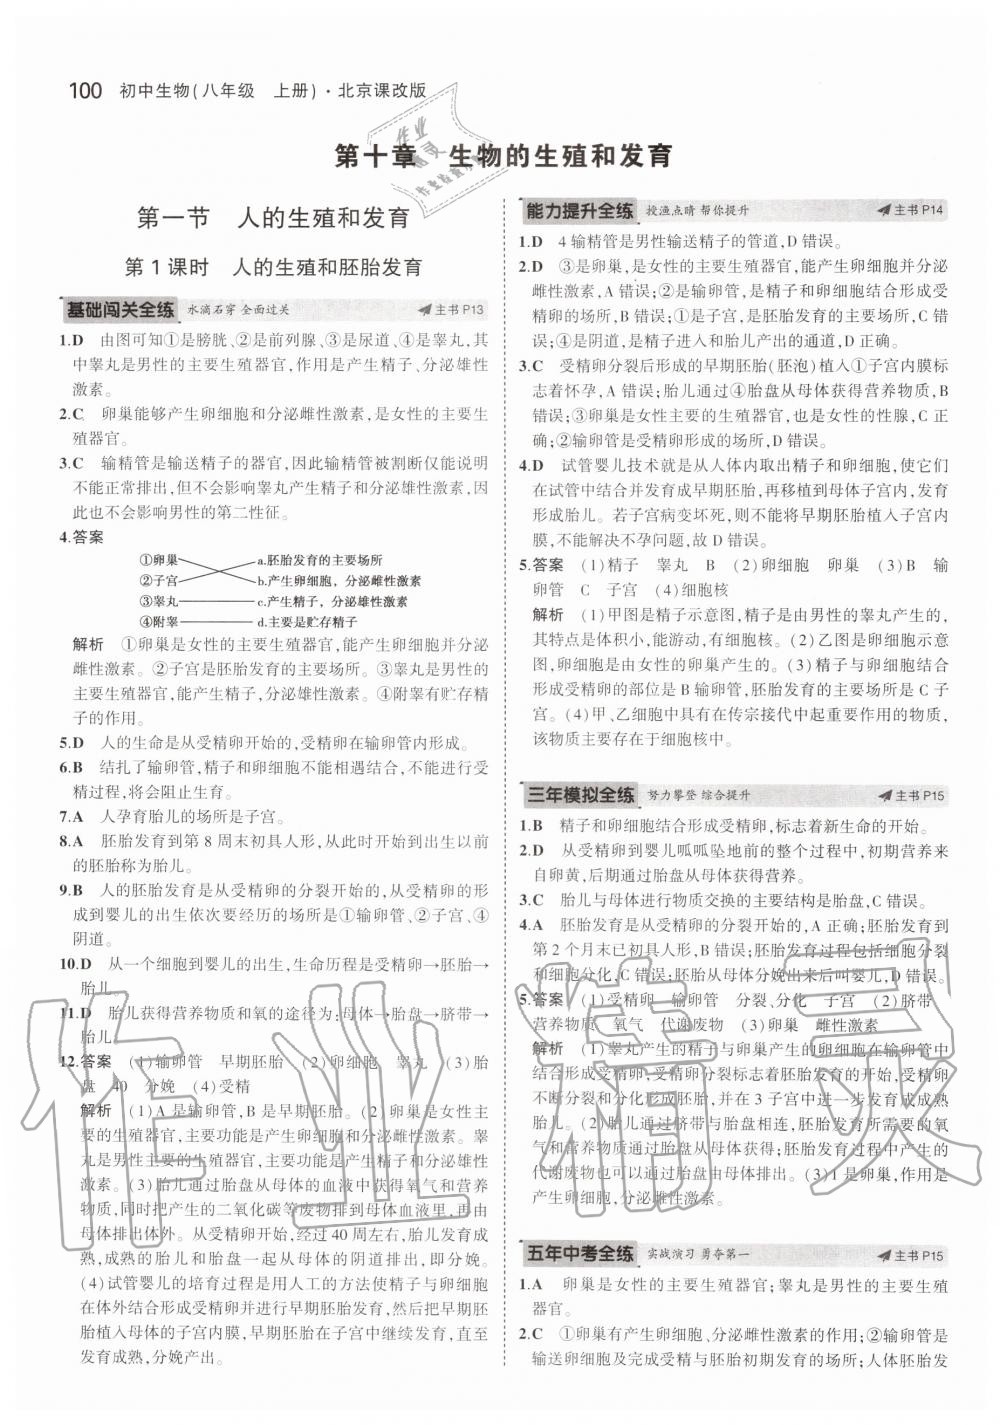 100 初中生物(八年级 上册)·北京课改版
第十章 生物的生殖和发育
第一节 人的生殖和发育
第1课时 人的生殖和胚胎发育
基础闯关全练 水滴石穿 全面过关 主书P13
1.D 由图可知①是膀胱、②是前列腺、③是尿道、④是睾丸,其
中睾丸是男性的主要生殖器官,作用是产生精子、分泌雄性
激素。
2.C 卵巢能够产生卵细胞和分泌雌性激素,是女性的主要生
殖器官。
3.C 输精管是输送精子的器官,因此输精管被割断仅能说明
不能正常排出,但不会影响睾丸产生精子和分泌雄性激素,因
此也不会影响男性的第二性征。
4.答案
①卵巢 a.胚胎发育的主要场所
②子宫 b.产生卵细胞，分泌雌性激素
③睾丸 c.产生精子，分泌雄性激素
④附睾 d.主要是贮存精子
解析 ①卵巢是女性的主要生殖器官,能产生卵细胞并分泌
雌性激素。②子宫是胚胎发育的主要场所。③睾丸是男性的
主要生殖器官,能产生精子,分泌雄性激素。④附睾有贮存精
子的作用。
5.D 人的生命是从受精卵开始的,受精卵在输卵管内形成。
6.B 结扎了输卵管,精子和卵细胞不能相遇结合,不能进行受
精过程,将会阻止生育。
7.A 人孕育胎儿的场所是子宫。
8.A 胚胎发育到第8周末初具人形,从此时开始到出生以前
的胚胎称为胎儿。
9.B 人的胚胎发育是从受精卵的分裂开始的,从受精卵的形
成到婴儿的出生依次要经历的场所是①输卵管、②子宫、④
阴道。
10.D 从一个细胞到婴儿的出生,生命历程是受精卵→胚胎→
胎儿。
11.D 胎儿获得营养物质和氧的途径为:母体→胎盘→脐带→
胎儿。
12.答案 (1)输卵管 早期胚胎 (2)卵细胞 睾丸 (3)胎
盘 40 分娩 (4)受精
解析 (1)A是输卵管,B是早期胚胎。(2)卵巢是女性主
要的生殖器官,主要功能是产生卵细胞和分泌雌性激素。睾
丸是男性主要的生殖器官,主要功能是产生精子和分泌雄性
激素。(3)胎儿通过胎盘从母体的血液中获得氧气和营养
物质,同时把产生的二氧化碳等废物排到母体血液里,再由
母体排出体外。从受精卵开始,经过40周左右,胎儿发育成
熟,成熟的胎儿和胎盘一起从母体的阴道排出,即分娩。
(4)试管婴儿的培育过程是用人工的方法使精子与卵细胞
在体外结合形成受精卵并进行早期胚胎发育,然后把早期胚
胎植入母体的子宫内膜,早期胚胎在子宫中继续发育,直至
发育成熟,分娩产出。
能力提升全练 授渔点睛 帮你提升 主书P14
1.D 4输精管是男性输送精子的管道,D错误。
2.D ③是卵巢,是女性的主要生殖器官,能产生卵细胞并分泌
雌性激素,A错误;②是输卵管,是精子和卵细胞结合形成受
精卵的场所,B错误;①是子宫,是胚胎发育的主要场所,C错
误;④是阴道,是精子进入和胎儿产出的通道,D正确。
3.C 受精卵分裂后形成的早期胚胎(胚泡)植入①子宫内膜标
志着怀孕,A错误;胎儿通过④胎盘从母体获得营养物质,B
错误;③卵巢是女性主要的生殖器官,也是女性的性腺,C正
确;②输卵管是受精卵形成的场所,D错误。
4.D 试管婴儿技术就是从人体内取出精子和卵细胞,使它们
在试管中结合并发育成早期胚胎,再移植到母体子宫内,发育
形成胎儿。若子宫病变坏死,则不能将早期胚胎植入子宫内
膜,不能解决不孕问题,故D错误。
5.答案 (1)精子 睾丸 B (2)卵细胞 卵巢 (3)B 输
卵管 C 子宫 (4)细胞核
解析 (1)甲图是精子示意图,精子是由男性的睾丸产生的,
其特点是体积小,能游动,有细胞核。(2)乙图是卵细胞示意
图,卵细胞是由女性的卵巢产生的。(3)精子与卵细胞结合
形成受精卵的部位是B输卵管,胚胎发育的主要场所是C子
宫。(4)甲、乙细胞中具有在传宗接代中起重要作用的物质,
该物质主要存在于细胞核中。
三年模拟全练 努力攀登 综合提升 主书P15
1.B 精子和卵细胞结合形成受精卵,标志着新生命的开始。
2.D 从受精卵到婴儿呱呱坠地前的整个过程中,初期营养来
自卵黄,后期通过胎盘从母体获得营养。
3.C 胎儿与母体进行物质交换的主要结构是胎盘,C错误。
4.A 胚胎发育是从受精卵的分裂开始的,A正确;胚胎发育到
第2个月末已初具人形,B错误;胚胎发育过程包括细胞分裂
和细胞分化,C错误;胚胎从母体分娩出来后叫婴儿,D错误。
5.答案 (1)受精卵 输卵管 分裂、分化 子宫 (2)脐带
营养物质 氧气 代谢废物 (3)卵巢 雌性激素
解析 (1)睾丸产生的精子与卵巢产生的卵细胞在输卵管中
结合形成受精卵,受精卵分裂标志着胚胎发育的开始,受精卵
不断分裂和分化形成胚胎,并在3子宫中进一步发育成成熟
胎儿。(2)胎儿通过脐带与胎盘相连,胚胎发育所需要的氧
气和营养物质通过胎盘从母体获得;胚胎发育过程中产生的
代谢废物也可以通过胎盘由母体排出。(3)1是卵巢,作用是
产生卵细胞,分泌雌性激素。
五年中考全练 实战演习 勇夺第一 主书P15
1.A 卵巢是女性的主要生殖器官;睾丸是男性的主要生殖
器官。
2.C ①卵巢有产生卵细胞、分泌雌性激素的作用;②输卵管是
输送卵细胞及完成受精与胚胎初期发育的场所;人体胚胎发
作业精灵